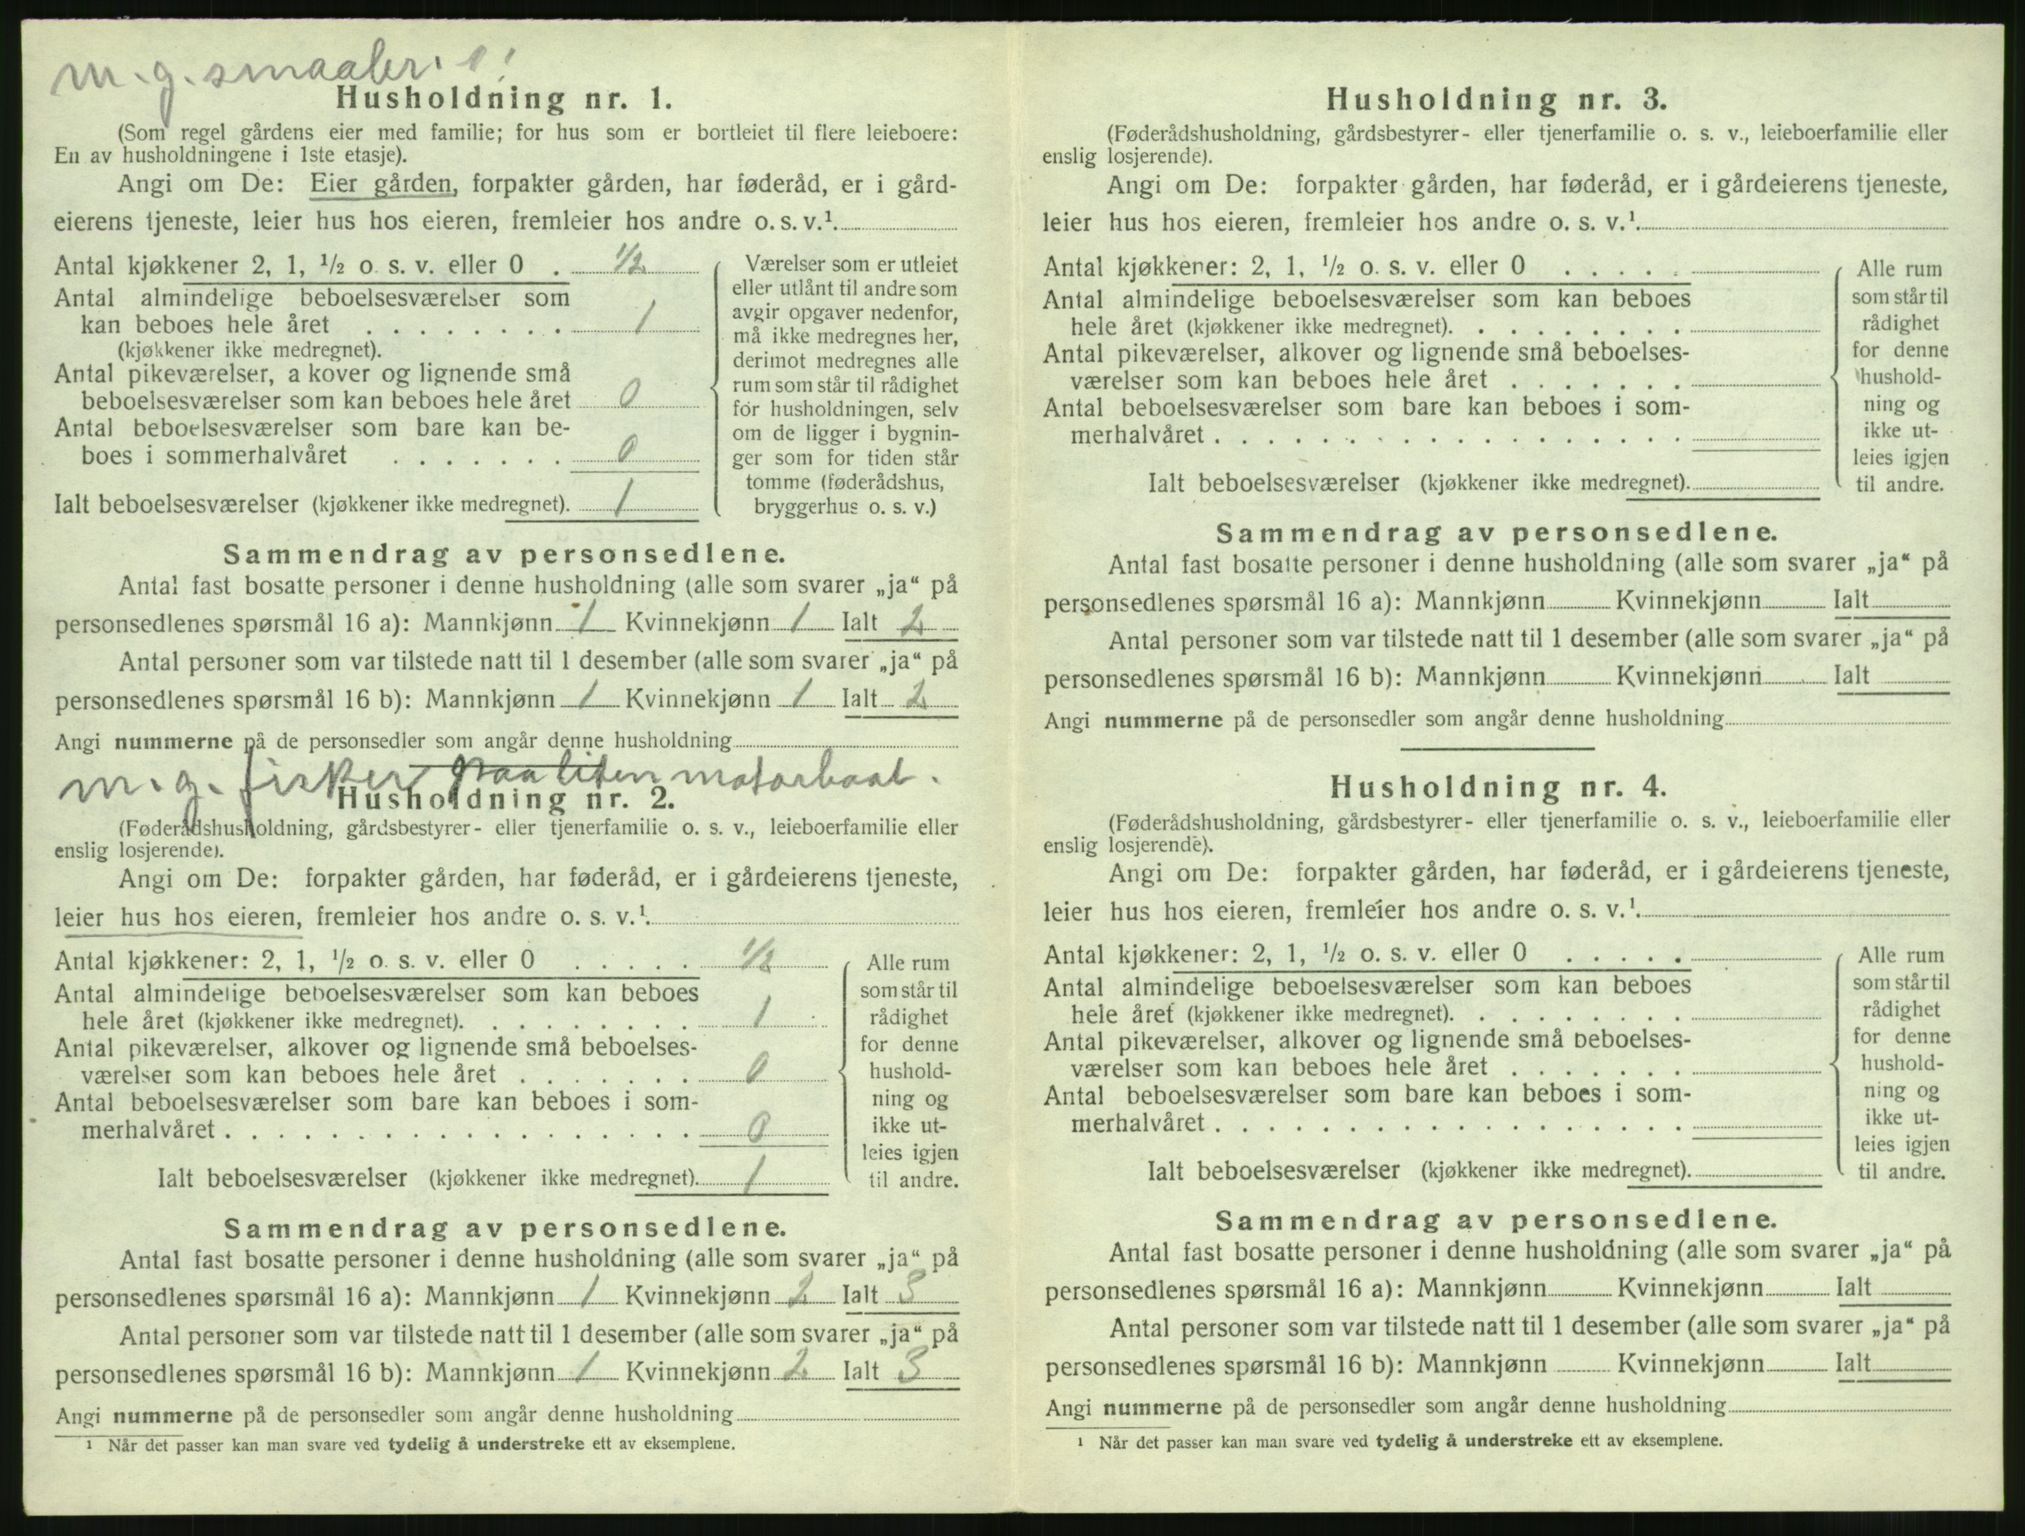 m. g. smaaler.
Husholdning nr. 1.
(Som regel gårdens eier med familie; for hus som er bortleiet til flere leieboere:
En av husholdningene i 1ste etasje).
Angi om De: Eier gården, forpakter gården, har føderåd, er i gård-
eierens tjeneste, leier hus hos eieren, fremleier hos andre o. s. v.¹
Antal kjøkkener 2, 1, ½ o. s. v. eller 0 . ½
Antal almindelige beboelsesværelser som
kan beboes hele året . . . . . . . . 1
(kjøkkener ikke medregnet).
Antal pikeværelser, a kover og lignende små
beboelsesværelser som kan beboes hele året 0
Antal beboelsesværelser som bare kan be-
boes i sommerhalvåret . . . . . . . 0
Ialt beboelsesværelser (kjøkkener ikke medregnet). 1
Værelser som er utleiet
eller utlånt til andre som
avgir opgaver nedenfor,
må ikke medregnes her,
derimot medregnes alle
rum som står til rådighet
for husholdningen, selv
om de ligger i bygnin-
ger som for tiden står
tomme (føderådshus,
bryggerhus o. s. v.)
Sammendrag av personsedlene.
Antal fast bosatte personer i denne husholdning (alle som svarer „ja“ på
personsedlenes spørsmål 16 a): Mannkjønn 1 Kvinnekjønn 1 Ialt 2
Antal personer som var tilstede natt til 1 desember (alle som svarer „ja“ på
personsedlenes spørsmål 16 b): Mannkjønn 1 Kvinnekjønn 1 Ialt 2
Angi nummerne på de personsedler som angår denne husholdning
m. g. fisker paa liten motorbaat.
Husholdning nr. 2.
(Føderådshusholdning, gårdsbestyrer- eller tjenerfamilie o. s. v., leieboerfamilie eller
enslig losjerende).
Angi om De: forpakter gården, har føderåd, er i gårdeierens tjeneste,
leier hus hos eieren, fremleier hos andre o. s. v.¹
Antal kjøkkener: 2, 1, ½ o. s. v. eller 0 . . . . . ½
Antal almindelige beboelsesværelser som kan beboes
hele året (kjøkkener ikke medregnet). . . . . . . . . 1
Antal pikeværelser, alkover og lignende små beboelses-
værelser som kan beboes hele året . . . . . . . 0
Antal beboelsesværelser som bare kan beboes i som-
merhalvåret . . . . . . . . . . . . . . . . . . 0
Ialt beboelsesværelser (kjøkkener ikke medregnet). 1
Alle rum
som står til
rådighet
for denne
hushold-
ning og
ikke ut-
leies igjen
til andre.
Sammendrag av personsedlene.
Antal fast bosatte personer i denne husholdning (alle som svarer „ja“ på
personsedlenes spørsmål 16 a): Mannkjønn 1 Kvinnekjønn 2 Ialt 3
Antal personer som var tilstede natt til 1 desember (alle som svarer „ja“ på
personsedlenes spørsmål 16 b): Mannkjønn 1 Kvinnekjønn 2 Ialt 3
Angi nummerne på de personsedler som angår denne husholdning
¹ Når det passer kan man svare ved tydelig å understreke ett av eksemplene.
Husholdning nr. 3.
(Føderådshusholdning, gårdsbestyrer- eller tjenerfamilie o. s. v., leieboerfamilie eller
enslig losjerende).
Angi om De: forpakter gården, har føderåd, er i gårdeierens tjeneste,
leier hus hos eieren, fremleier hos andre o. s. v.¹
Antal kjøkkener: 2, 1, ½ o. s. v. eller 0 . . . . .
Antal almindelige beboelsesværelser som kan beboes
hele året (kjøkkener ikke medregnet). . . . . . . . .
Antal pikeværelser, alkover og lignende små beboelses-
værelser som kan beboes hele året . . . . . . .
Antal beboelsesværelser som bare kan beboes i som-
merhalvåret . . . . . . . . . . . . . . . . . .
Ialt beboelsesværelser (kjøkkener ikke medregnet).
Alle rum
som står til
rådighet
for denne
hushold-
ning og
ikke ut-
leies igjen
til andre.
Sammendrag av personsedlene.
Antal fast bosatte personer i denne husholdning (alle som svarer „ja“ på
personsedlenes spørsmål 16 a): Mannkjønn Kvinnekjønn Ialt
Antal personer som var tilstede natt til 1 desember (alle som svarer „ja“ på
personsedlenes spørsmål 16 b): Mannkjønn Kvinnekjønn Ialt
Angi nummerne på de personsedler som angår denne husholdning
Husholdning nr. 4.
(Føderådshusholdning, gårdsbestyrer- eller tjenerfamilie o. s. v., leieboerfamilie eller
enslig losjerende).
Angi om De: forpakter gården, har føderåd, er i gårdeierens tjeneste,
leier hus hos eieren, fremleier hos andre o. s. v.¹
Antal kjøkkener: 2, 1, ½ o. s. v. eller 0 . . . . .
Antal almindelige beboelsesværelser som kan beboes
hele året (kjøkkener ikke medregnet). . . . . . . . .
Antal pikeværelser, alkover og lignende små beboelses-
værelser som kan beboes hele året . . . . . . .
Antal beboelsesværelser som bare kan beboes i som-
merhalvåret . . . . . . . . . . . . . . . . . .
Ialt beboelsesværelser (kjøkkener ikke medregnet).
Alle rum
som står til
rådighet
for denne
hushold-
ning og
ikke ut-
leies igjen
til andre.
Sammendrag av personsedlene.
Antal fast bosatte personer i denne husholdning (alle som svarer „ja“ på
personsedlenes spørsmål 16 a): Mannkjønn Kvinnekjønn Ialt
Antal personer som var tilstede natt til 1 desember (alle som svarer „ja“ på
personsedlenes spørsmål 16 b): Mannkjønn Kvinnekjønn Ialt
Angi nummerne på de personsedler som angår denne husholdning
¹ Når det passer kan man svare ved tydelig å understreke ett av eksemplene.